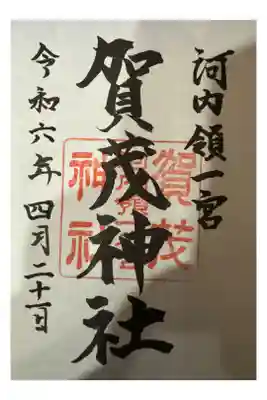 河内領一宮
賀茂神社
令和六年 四月二十一日
賀茂
神社